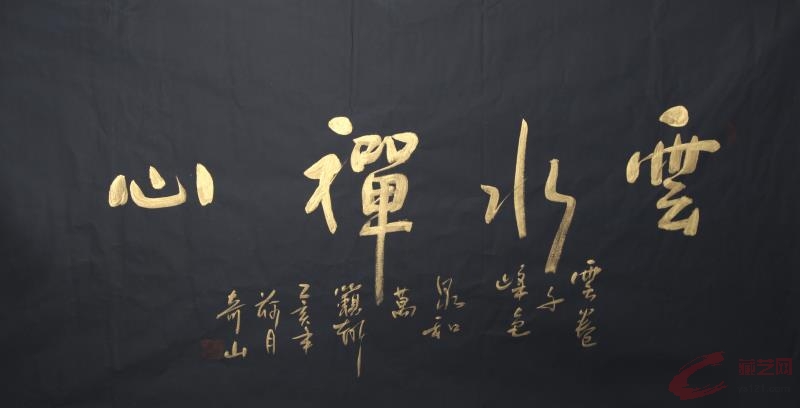 雲水禪心
雲卷
千
峰色
泉和
萬
籟吟
亥年
荷月
奇山
藏艺网